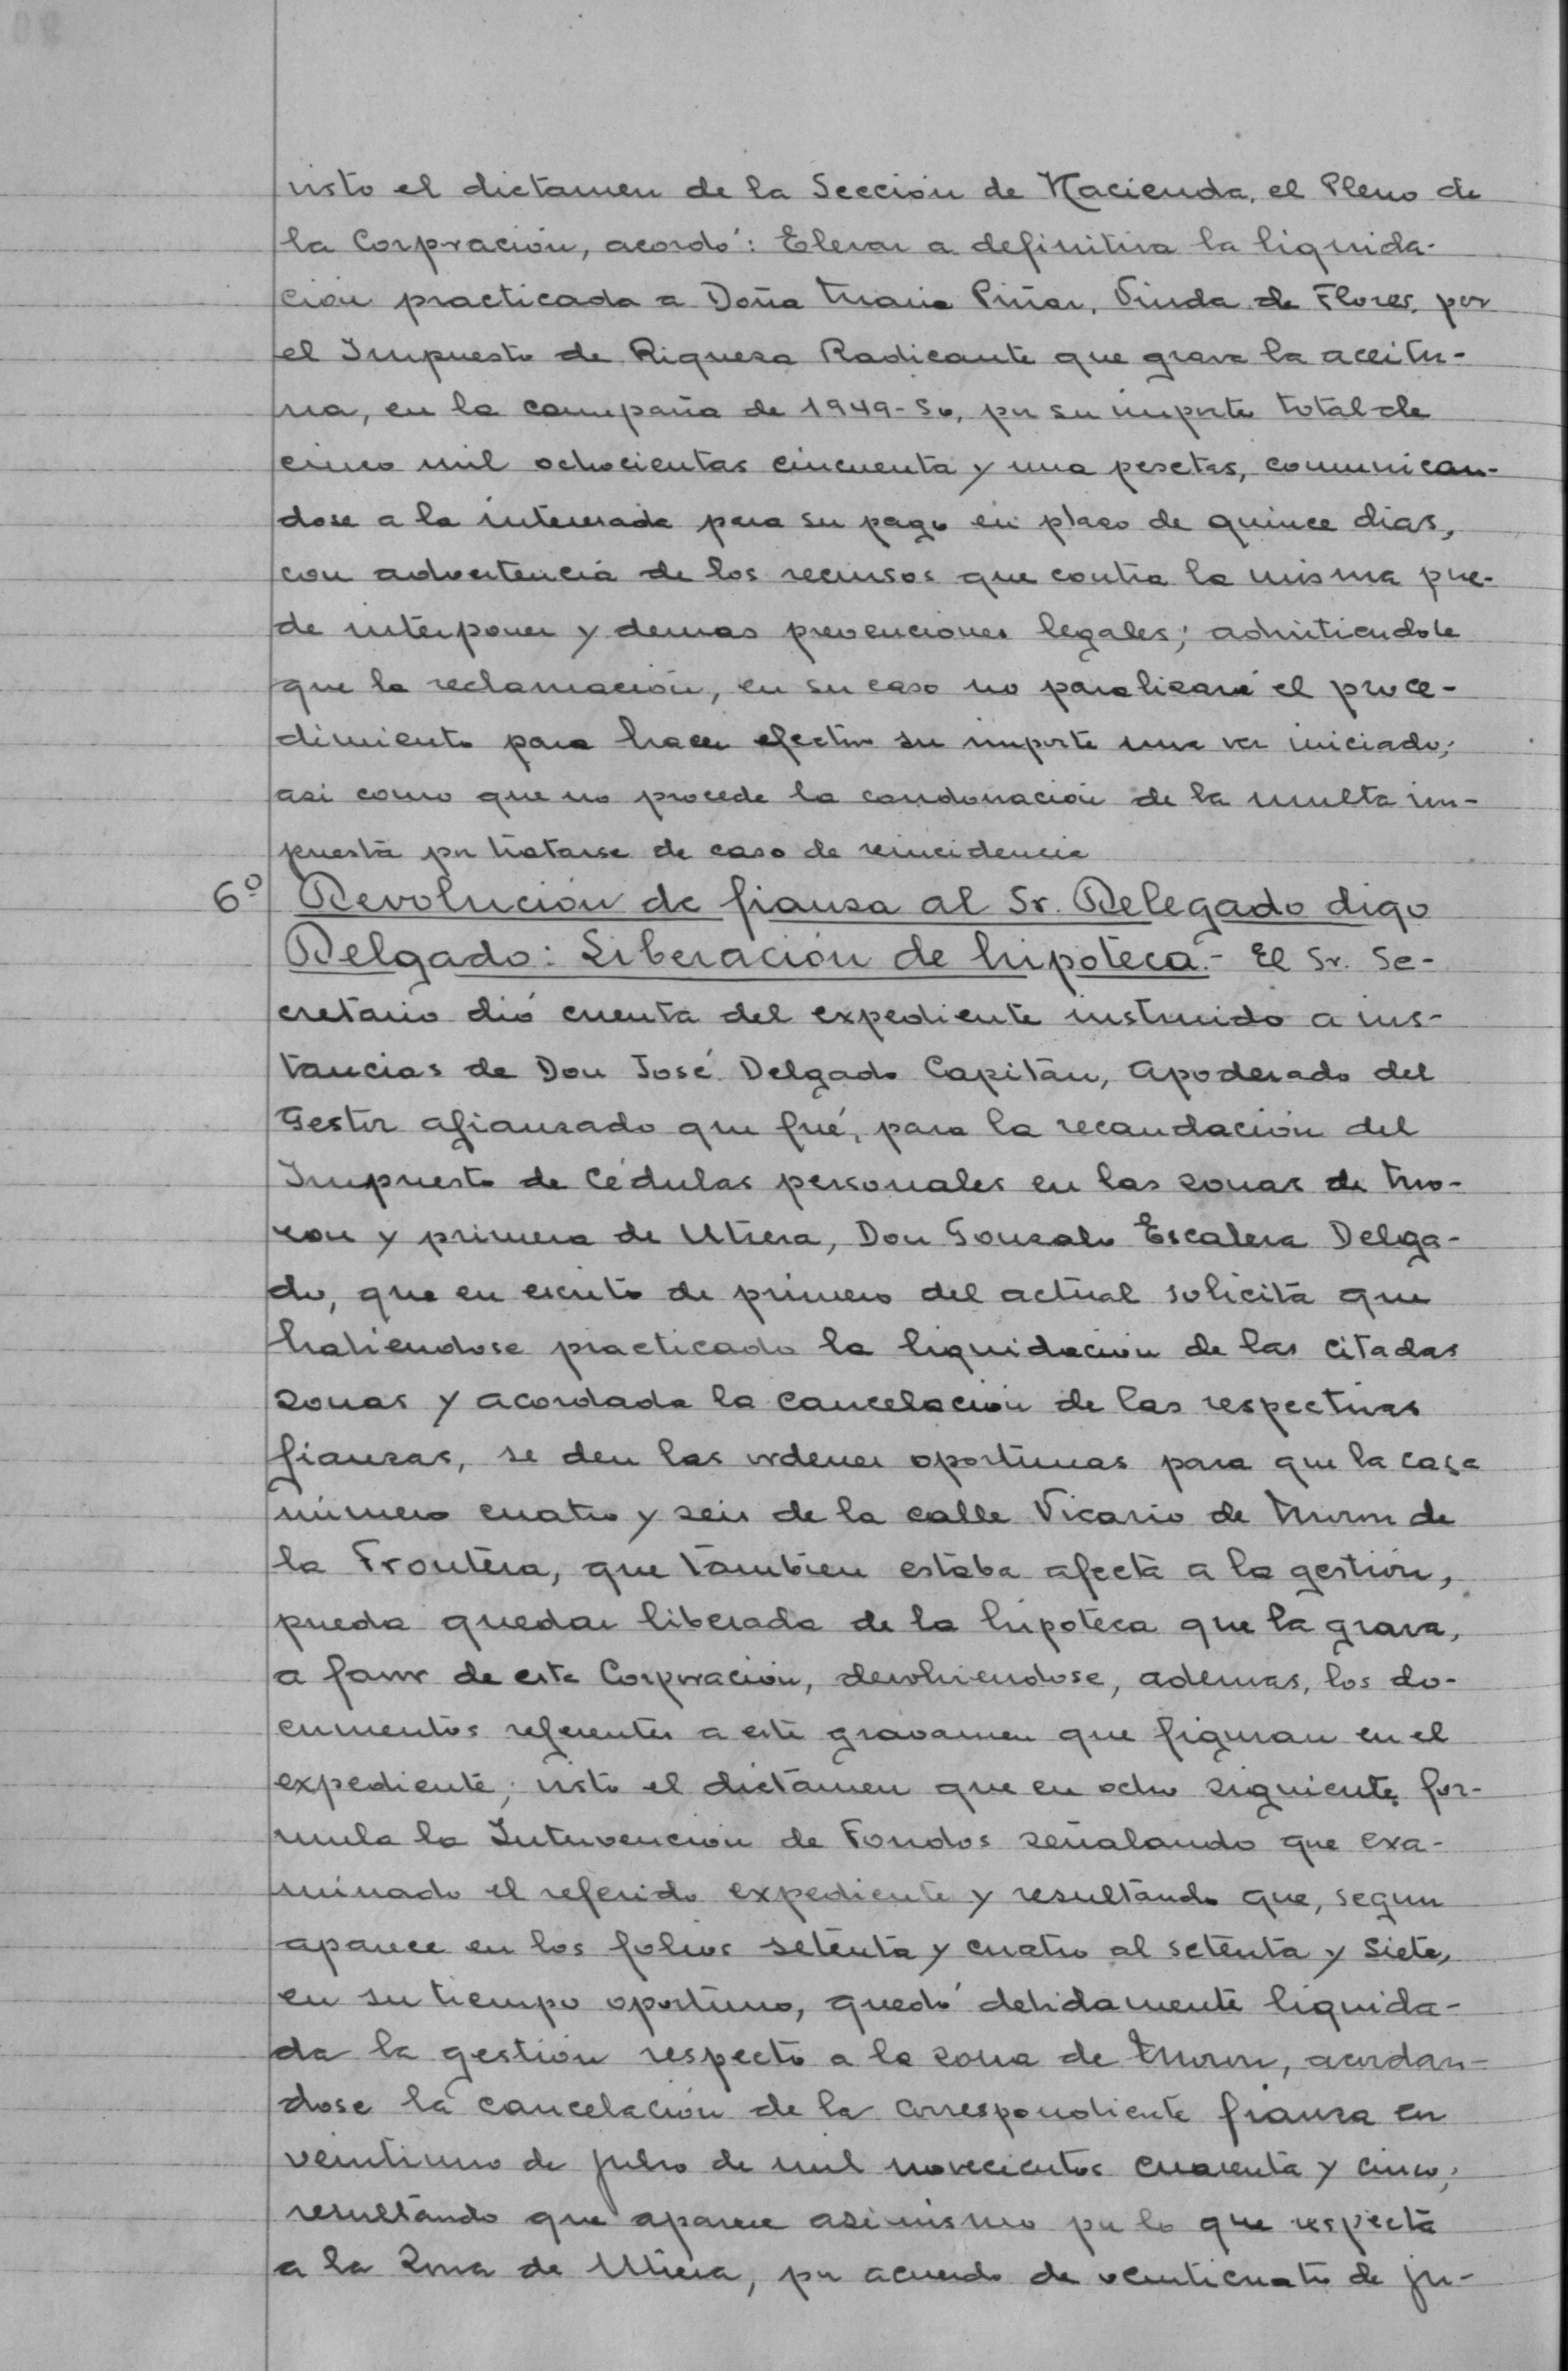 visto el dictamen de la Sección de Hacienda, el Pleno de
la Corporación, acordó: Elevar a definitiva la liquida-
ción practicada a Doña Maria Piñar, Viuda de Flores, por
el Impuesto de Riqueza Radicante que grava la aceitu-
na, en la campaña de 1949-50, por su importe total de
cinco mil ochocientas cincuenta y una pesetas, comunican-
dose a la interesada para su pago en plazo de quince dias,
con advertencia de los recursos que contra la misma pue-
de interponer y demas prevenciones legales; advirtiendole
que la reclamación, en su caso no paralizará el proce-
dimiento para hacer efectivo su importe una vez iniciado;
asi como que no procede la condonación de la multa im-
puesta por tratarse de caso de reincidencia
6º Devolución de fianza al Sr. Delegado digo
Delgado: Liberación de hipoteca.- El Sr. Se-
cretario dió cuenta del expediente instruido a ins-
tancias de Don José Delgado Capitán, Apoderado del
Gestor afianzado que fué, para la recaudación del
Impuesto de Cédulas personales en las zonas de Mo-
ron y primera de Utrera, Don Gonzalo Escalera Delga-
do, que en escrito de primero del actual solicita que
habiendose practicado la liquidación de las citadas
zonas y acordada la cancelación de las respectivas
fianzas, se den las ordenes oportunas para que la casa
número cuatro y seis de la calle Vicario de Moron de
la Frontera, que tambien estaba afecta a la gestión,
pueda quedar liberada de la hipoteca que la grava,
a favor de esta Corporación, devolviendose, ademas, los do-
cumentos referentes a este gravamen que figuran en el
expediente; visto el dictámen que en ocho siguiente for-
mula la Intervención de Fondos señalando que exa-
minado el referido expediente y resultando que, segun
aparece en los folios setenta y cuatro al setenta y siete,
en su tiempo oportuno, quedó debidamente liquida-
da la gestión respecto a la zona de Moron, acordan-
dose la cancelación de la correspondiente fianza en
veintiuno de julio de mil novecientos cuarenta y cinco;
resultando que aparece asimismo por lo que respecta
a la Zona de Utrera, por acuerdo de veinticuatro de ju-